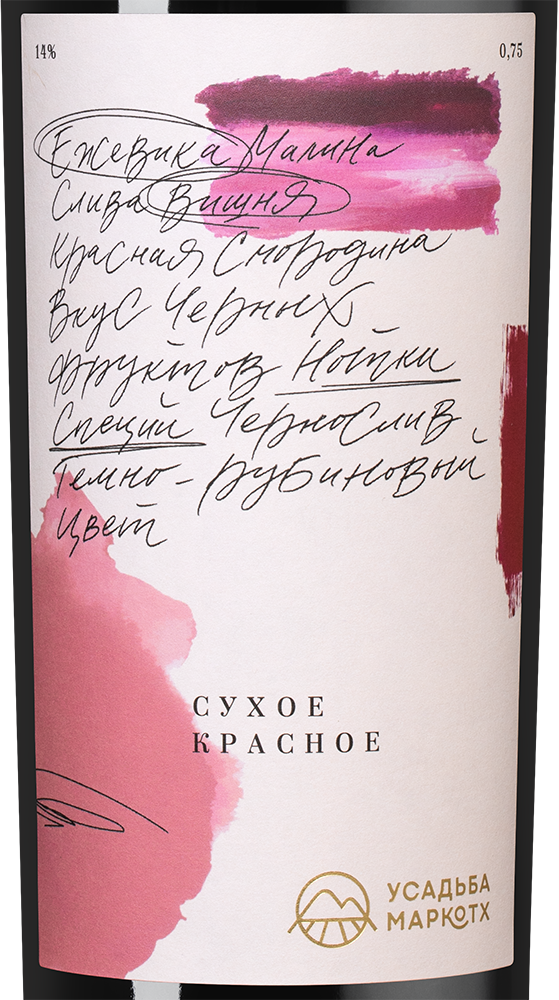 14% 0,75
Ежевика Малина
Слива Вишня
Красная Смородина
Вкус Черных
Фруктов Нотки
Специй Чернослив
Темно-рубиновый
цвет
СУХОЕ
КРАСНОЕ
УСАДЬБА
МАРКОТХ